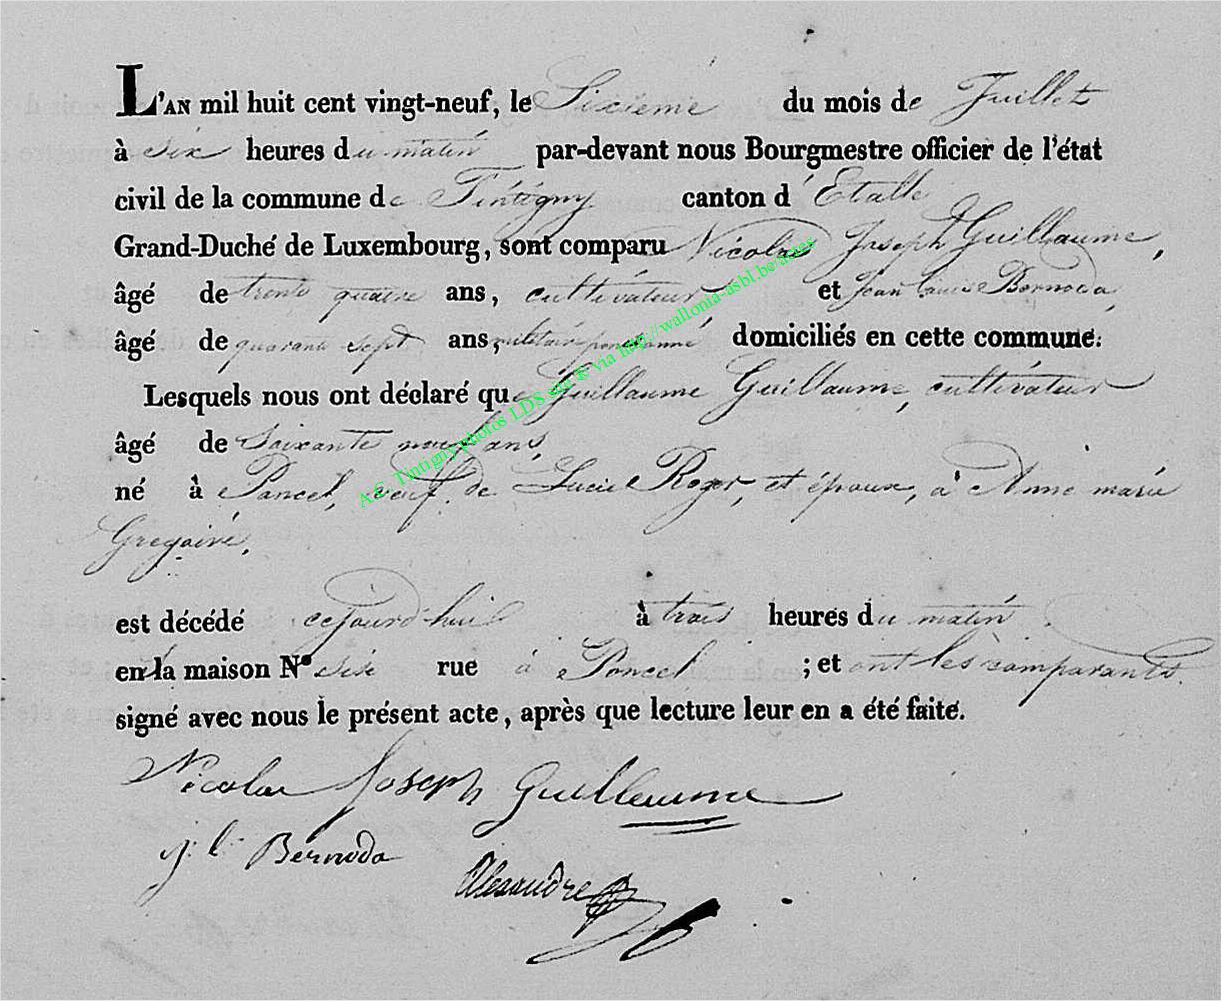 L'AN mil huit cent vingt-neuf, le Sixieme du mois de Juillet
à six heures du matin par-devant nous Bourgmestre officier de l'état
civil de la commune de Tintigny canton d'Etalle
Grand-Duché de Luxembourg, sont comparu Nicolas Joseph Guillaume,
âgé de trente quatre ans, cultivateur et Jean Louis Bernoda,
âgé de quarante sept ans, militaire pensionné domiciliés en cette commune:
Lesquels nous ont déclaré que Guillaume Guillaume, cultivateur
âgé de soixante neuf ans,
né à Poncel, veuf de Lucie Roger, et époux, à Anne marie
Gregoire,
est décédé cejourd'hui à trois heures du matin
en la maison N° six rue à Poncel ; et ont les comparants
signé avec nous le présent acte, après que lecture leur en a été faite.
Nicolas Joseph Guillaume
j. l. Bernoda
Alexandre
A.C. Tintigny photos LDS site & via http://wallonia-asbl.be/actes